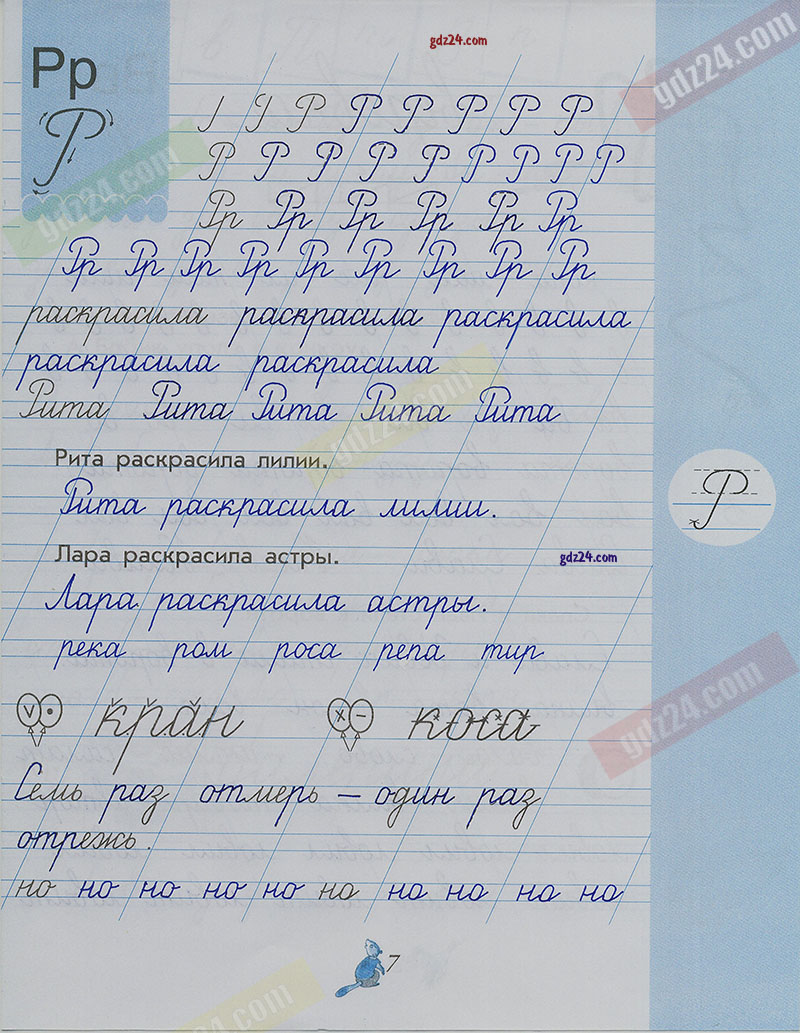 gdz24.com
gdz24.com
Рр
Р
Р Р Р Р Р Р
Р Р Р Р Р Р Р Р Р
gdz24.com
Рр Рр Рр Рр Рр Рр
Рр Рр Рр Рр Рр Рр Рр Рр Рр
раскрасила раскрасила раскрасила
раскрасила раскрасила
Рита Рита Рита Рита Рита
gdz24.com
Рита раскрасила лилии.
Рита раскрасила лилии.
Р
Лара раскрасила астры.
gdz24.com
Лара раскрасила астры.
река ром роса репа тир
gdz24.com
кран коса
Семь раз отмерь – один раз
отрежь.
но но но но но но но но но но
7
gdz24.com